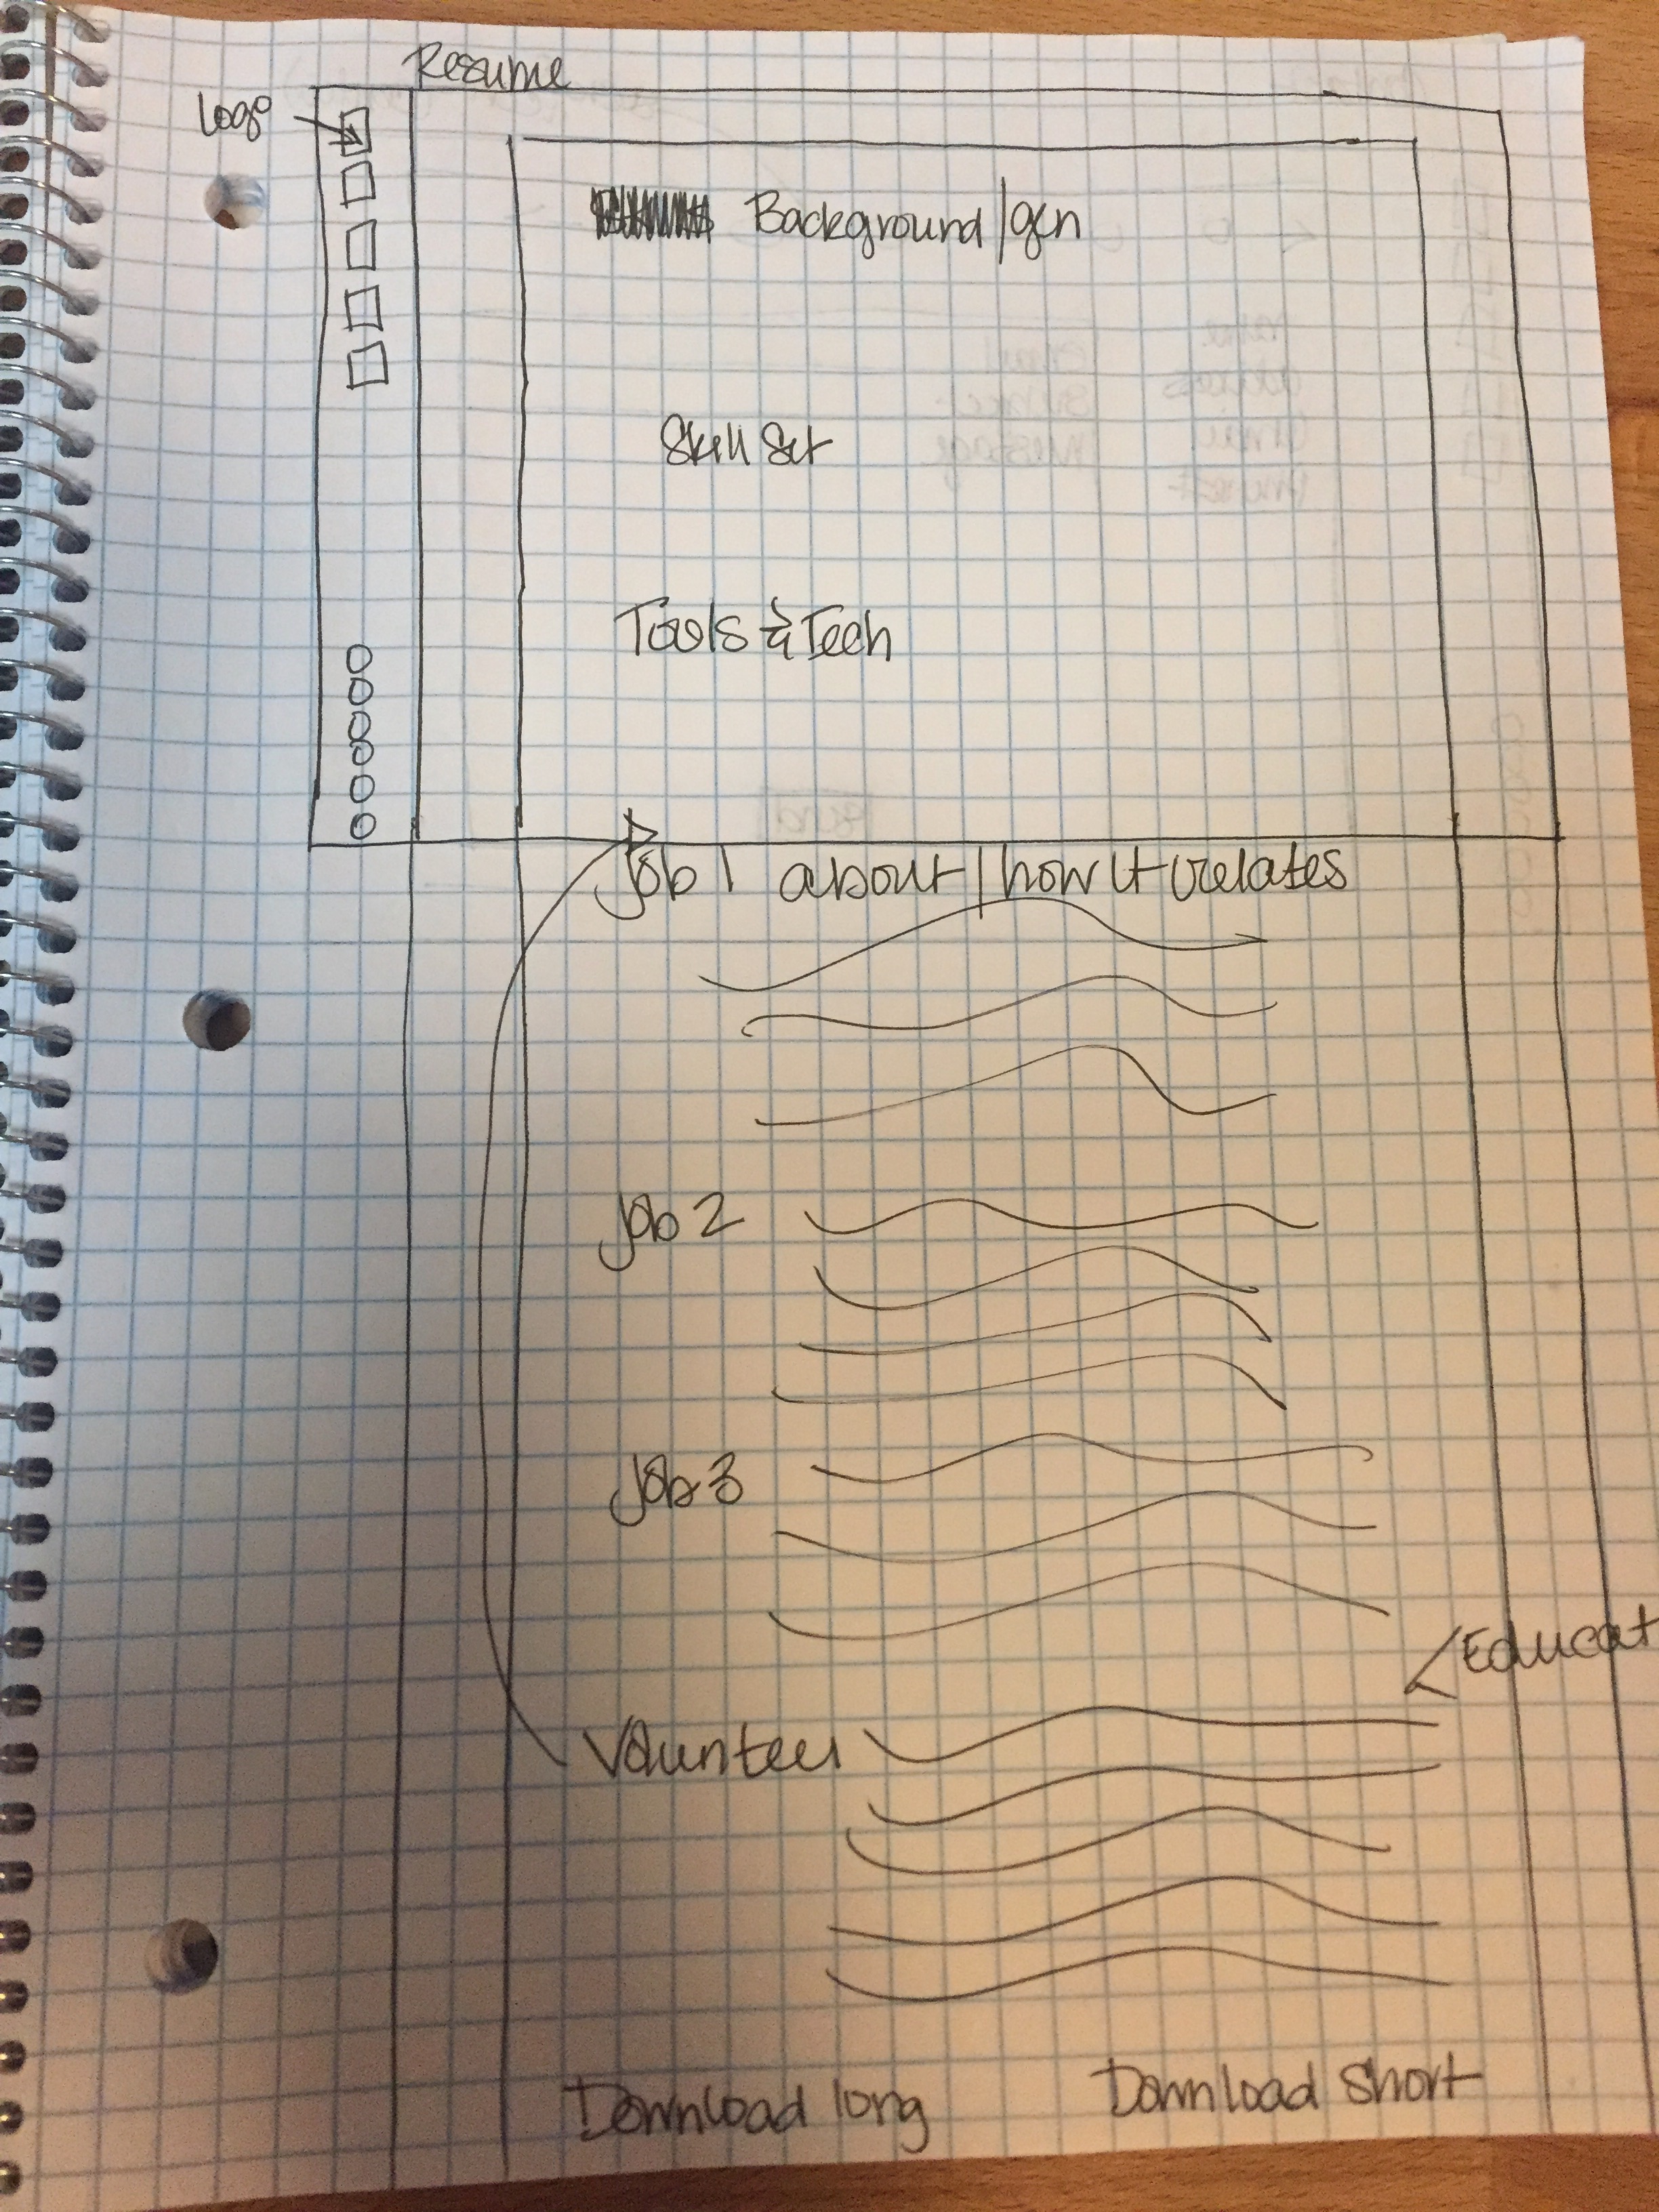 Resume
Logo
Background/gen
Skill Set
Tools & Tech
Job 1 about/how it relates
Job 2
Job 3
Educat
Volunteer
Download long
Download short